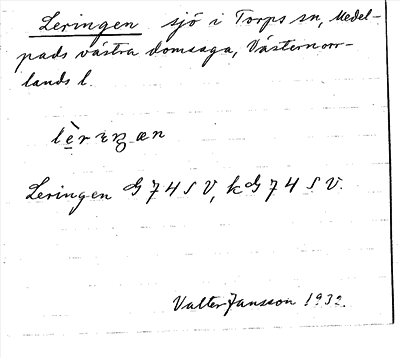 Leringen sjö i Torps sn, Medel-
pads västra domsaga, Västernorr-
lands l.
Leringen G 74 S V, kG 74 S V.
Valter Jansson 1932.